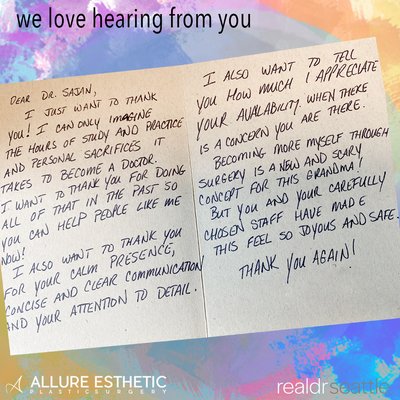 we love hearing from you
DEAR DR. SAJAN,
I JUST WANT TO THANK
YOU! I CAN ONLY IMAGINE
THE HOURS OF STUDY AND PRACTICE
AND PERSONAL SACRIFICES IT
TAKES TO BECOME A DOCTOR.
I WANT TO THANK YOU FOR DOING
ALL OF THAT IN THE PAST SO
YOU CAN HELP PEOPLE LIKE ME
NOW!
I ALSO WANT TO THANK YOU
FOR YOUR CALM PRESENCE,
CONCISE AND CLEAR COMMUNICATION
AND YOUR ATTENTION TO DETAIL.
I ALSO WANT TO TELL
YOU HOW MUCH I APPRECIATE
YOUR AVALABILITY. WHEN THERE
IS A CONCERN YOU ARE THERE.
BECOMING MORE MYSELF THROUGH
SURGERY IS A NEW AND SCARY
CONCEPT FOR THIS GRANDMA!
BUT YOU AND YOUR CAREFULLY
CHOSEN STAFF HAVE MADE
THIS FEEL SO JOYOUS AND SAFE.
THANK YOU AGAIN!
ALLURE ESTHETIC
PLASTICSURGERY
realdrseattle